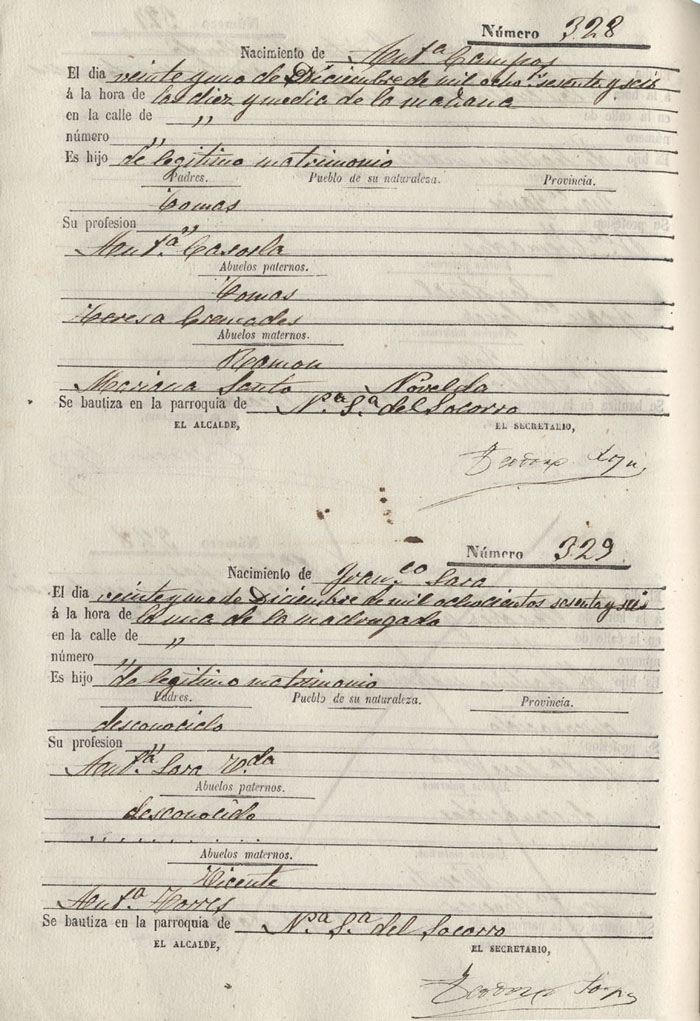 Número 328
Nacimiento de Antª Campos
El dia veinte y uno de Diciembre de mil ochos. sesenta y seis
á la hora de la diez y media de la mañana
en la calle de "
número "
Es hijo de legitimo matrimonio
Padres. Pueblo de su naturaleza. Provincia.
Tomas
Su profesion "
Antª. Casorla
Abuelos paternos.
Tomas
Teresa Cremades
Abuelos maternos.
Ramon
Mariana Santo Novelda
Se bautiza en la parroquia de Nª Sª del Socorro
EL ALCALDE, EL SECRETARIO,
Número 329
Nacimiento de Franco Sara
El dia veinte y uno de Diciembre de mil ochocientos sesenta y seis
á la hora de la una de la madrugada
en la calle de "
número "
Es hijo de legitimo matrimonio
Padres. Pueblo de su naturaleza. Provincia.
desconocido
Su profesion "
Antª Sara
Abuelos paternos.
desconocido
Abuelos maternos.
Vicente
Antª Torres
Se bautiza en la parroquia de Nª Sª del Socorro
EL ALCALDE, EL SECRETARIO,